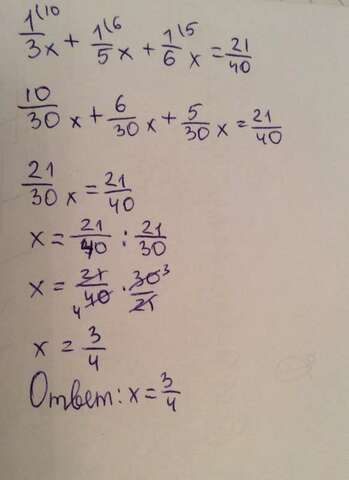 1⁽¹⁰/3 x + 1⁽⁶/5 x + 1⁽⁵/6 x = 21/40
10/30 x + 6/30 x + 5/30 x = 21/40
21/30 x = 21/40
x = 21/40 : 21/30
x = 21/40 4 · 30 3/21
x = 3/4
Ответ: x = 3/4